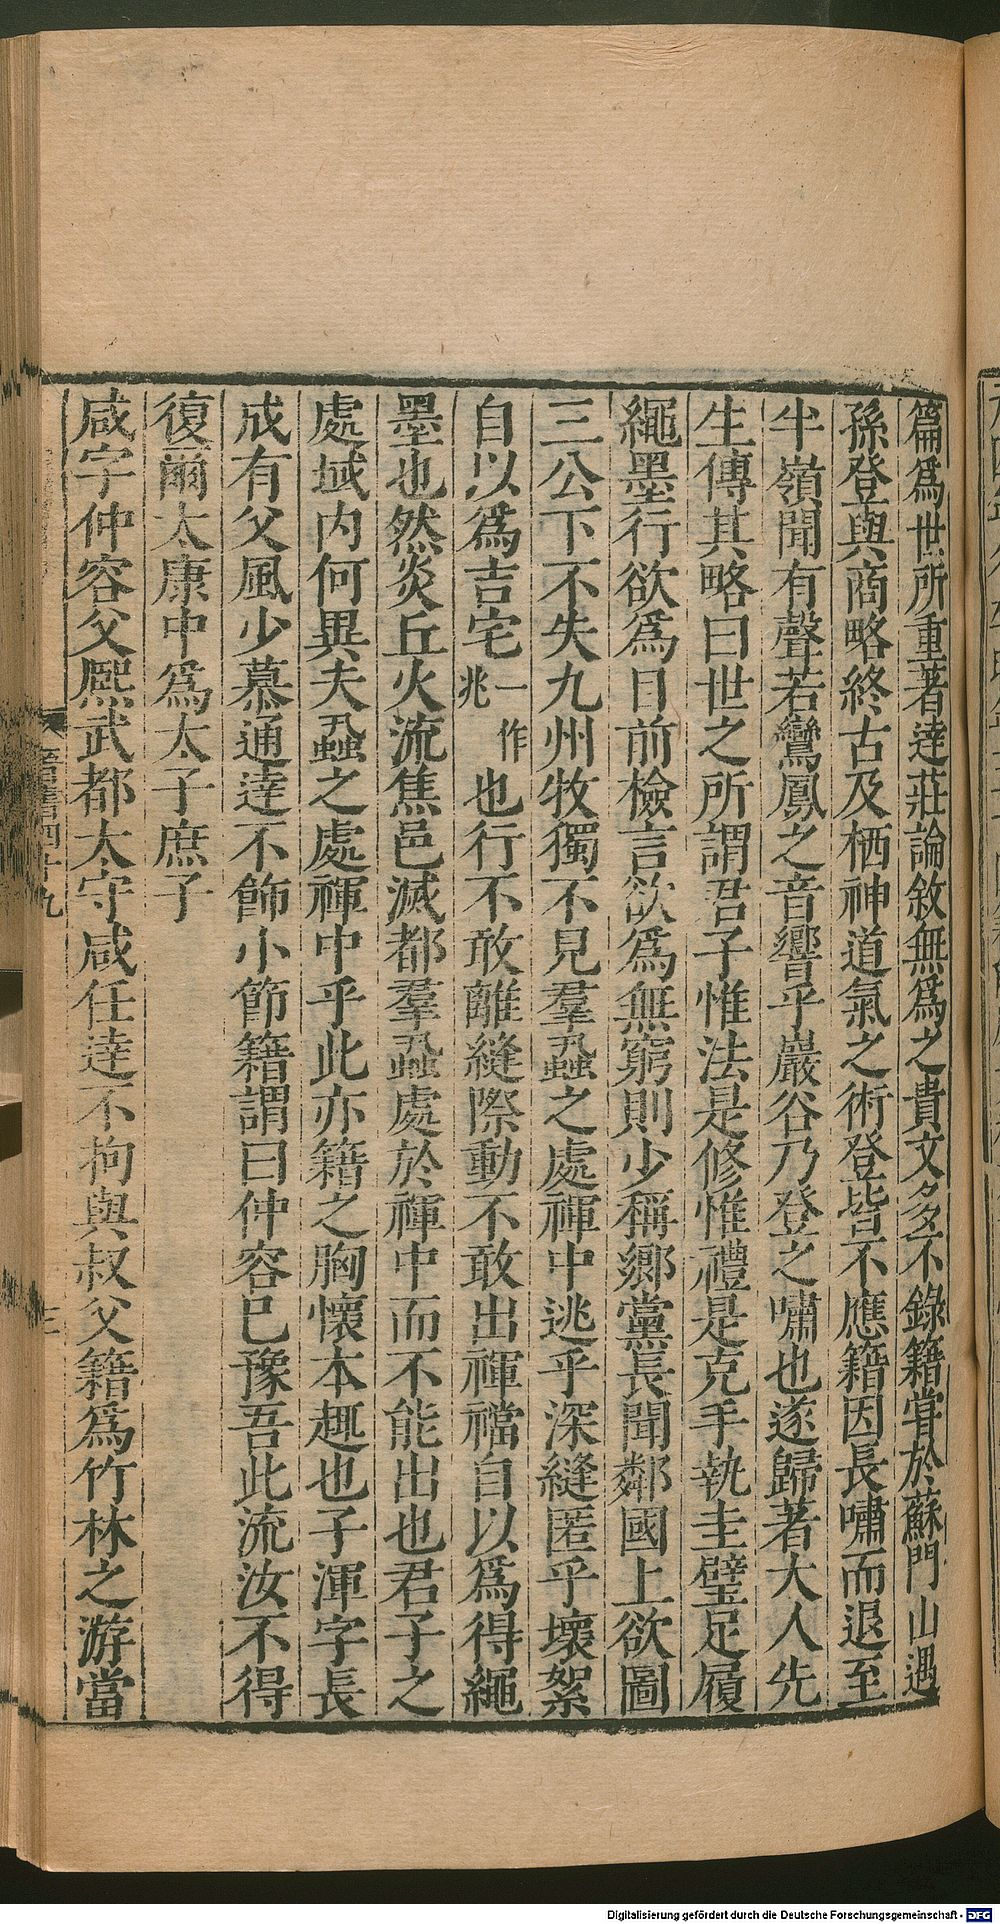 篇爲世所重著達莊論敘無爲之貴文多不錄籍嘗於蘇門山遇
孫登與商略終古及栖神道氣之術登皆不應籍因長嘯而退至
半嶺聞有聲若鸞鳳之音響乎巖谷乃登之嘯也遂歸著大人先
生傳其略曰世之所謂君子惟法是修惟禮是克手執圭璧足履
繩墨行欲爲目前檢言欲爲無窮則少稱鄉黨長聞鄰國上欲圖
三公下不失九州牧獨不見羣蝨之處褌中逃乎深縫匿乎壞絮
自以爲吉宅一作兆也行不敢離縫際動不敢出褌襠自以爲得繩
墨也然炎丘火流焦邑滅都羣蝨處於褌中而不能出也君子之
處域内何異夫蝨之處褌中乎此亦籍之胸懷本趣也子渾字長
成有父風少慕通達不飾小節籍謂曰仲容已豫吾此流汝不得
復爾太康中爲太子庶子
咸字仲容父熙武都太守咸任達不拘與叔父籍爲竹林之游當
晉書四十九
三
Digitalisierung gefördert durch die Deutsche Forschungsgemeinschaft - DFG